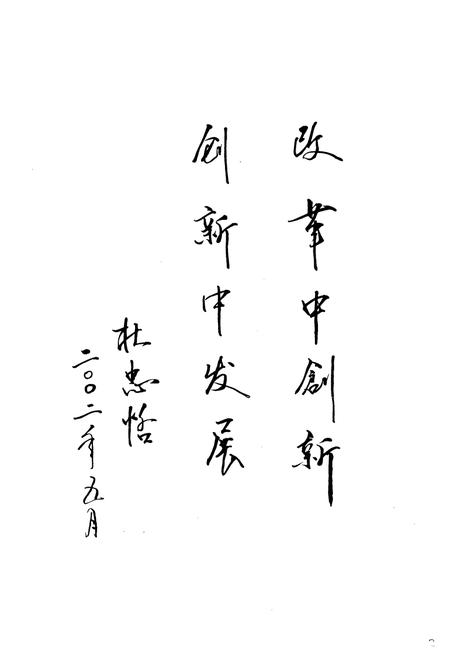 改革中創新
创新中发展
杜忠恪
二〇〇二年五月